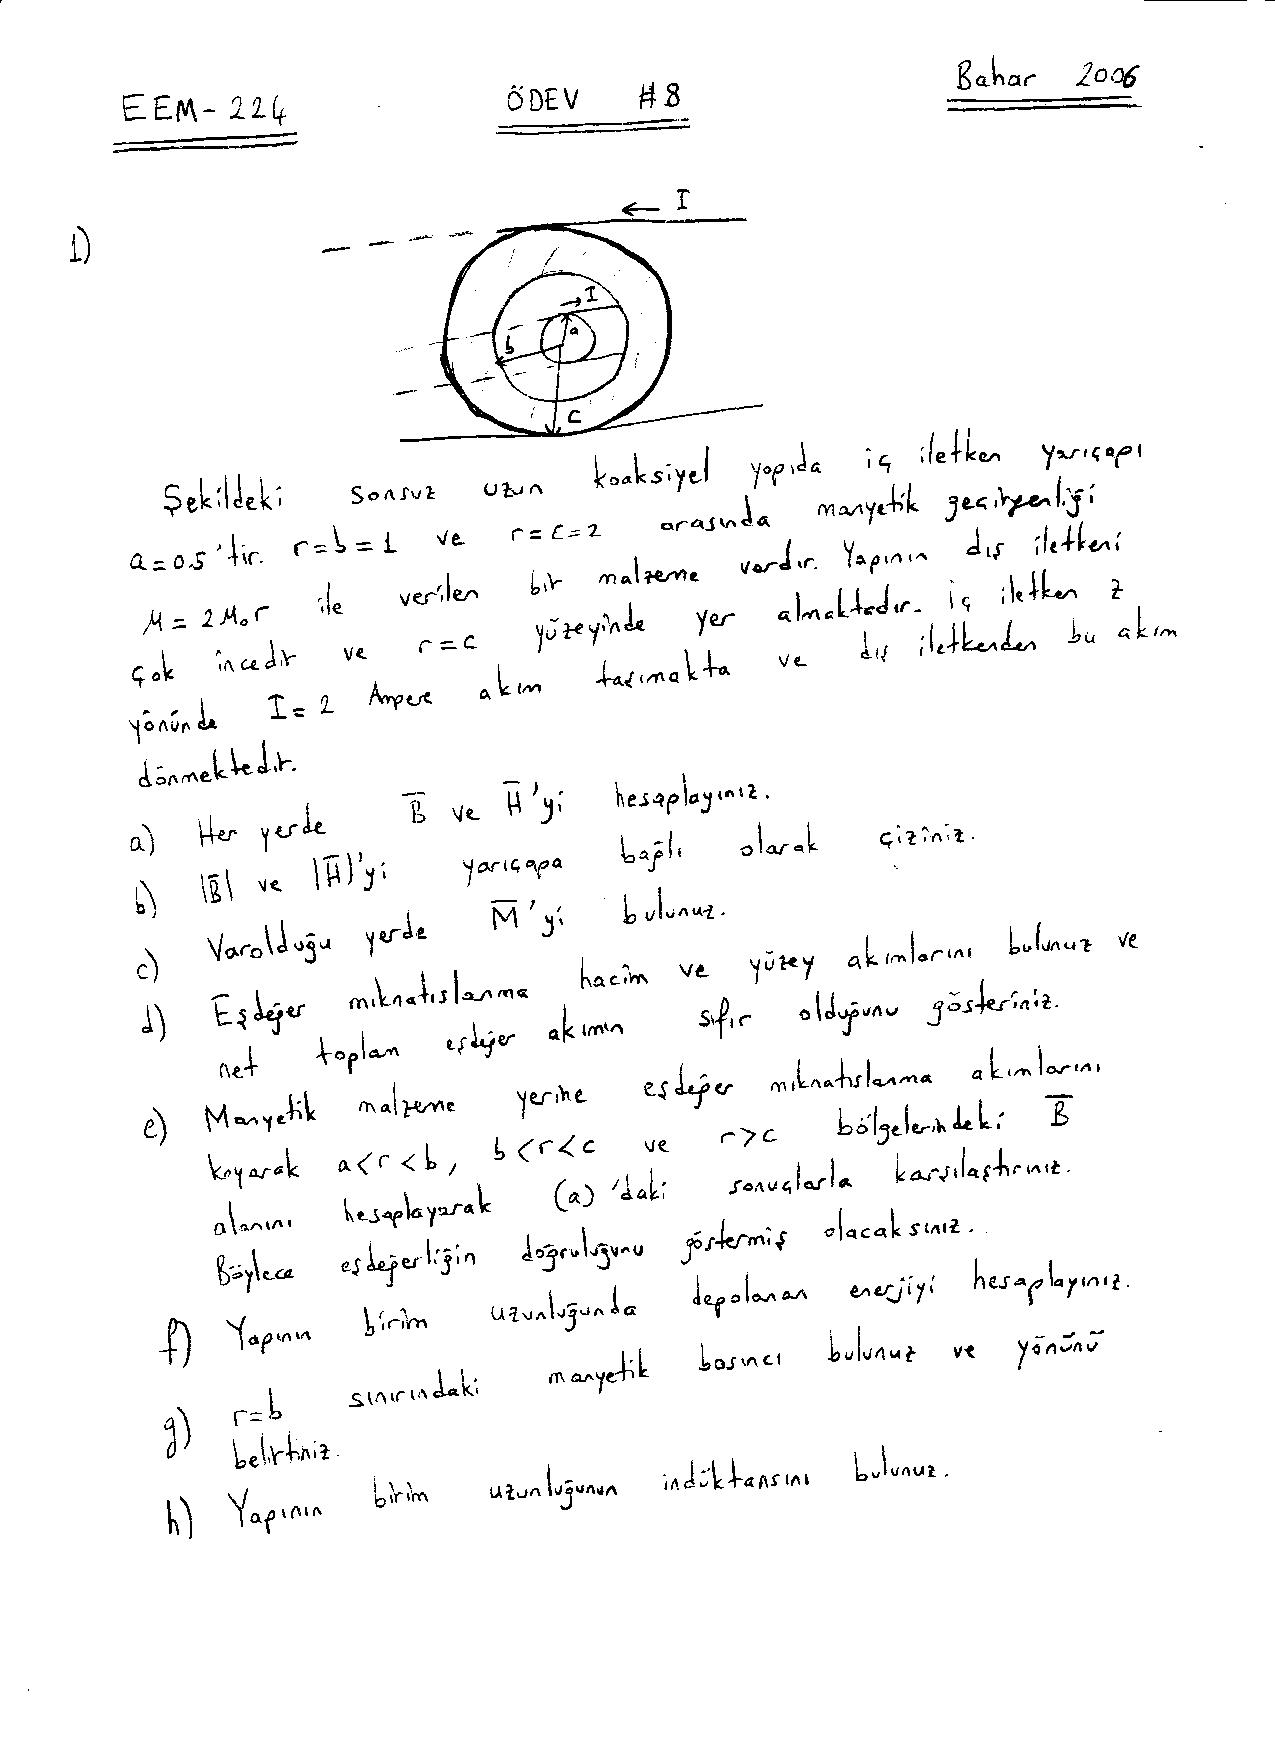 EEM-224 ÖDEV #8 Bahar 2006
1)
← I
→ I
a
b
c
Şekildeki sonsuz uzun koaksiyel yapıda iç iletken yarıçapı
a=0.5'tir. r=b=1 ve r=c=2 arasında manyetik geçirgenliği
μ=2μ₀r ile verilen bir malzeme vardır. Yapının dış iletkeni
çok incedir ve r=c yüzeyinde yer almaktadır. İç iletken z
yönünde I=2 Ampere akım taşımakta ve dış iletkenden bu akım
dönmektedir.
a) Her yerde B̅ ve H̅'yi hesaplayınız.
b) |B̅| ve |H̅|'yi yarıçapa bağlı olarak çiziniz.
c) Varolduğu yerde M̅'yi bulunuz.
d) Eşdeğer mıknatıslanma hacim ve yüzey akımlarını bulunuz ve
net toplam eşdeğer akımın sıfır olduğunu gösteriniz.
e) Manyetik malzeme yerine eşdeğer mıknatıslanma akımlarını
koyarak a<r<b, b<r<c ve r>c bölgelerindeki B̅
alanını hesaplayarak (a)'daki sonuçlarla karşılaştırınız.
Böylece eşdeğerliğin doğruluğunu göstermiş olacaksınız.
f) Yapının birim uzunluğunda depolanan enerjiyi hesaplayınız.
g) r=b sınırındaki manyetik basıncı bulunuz ve yönünü
belirtiniz.
h) Yapının birim uzunluğunun indüktansını bulunuz.